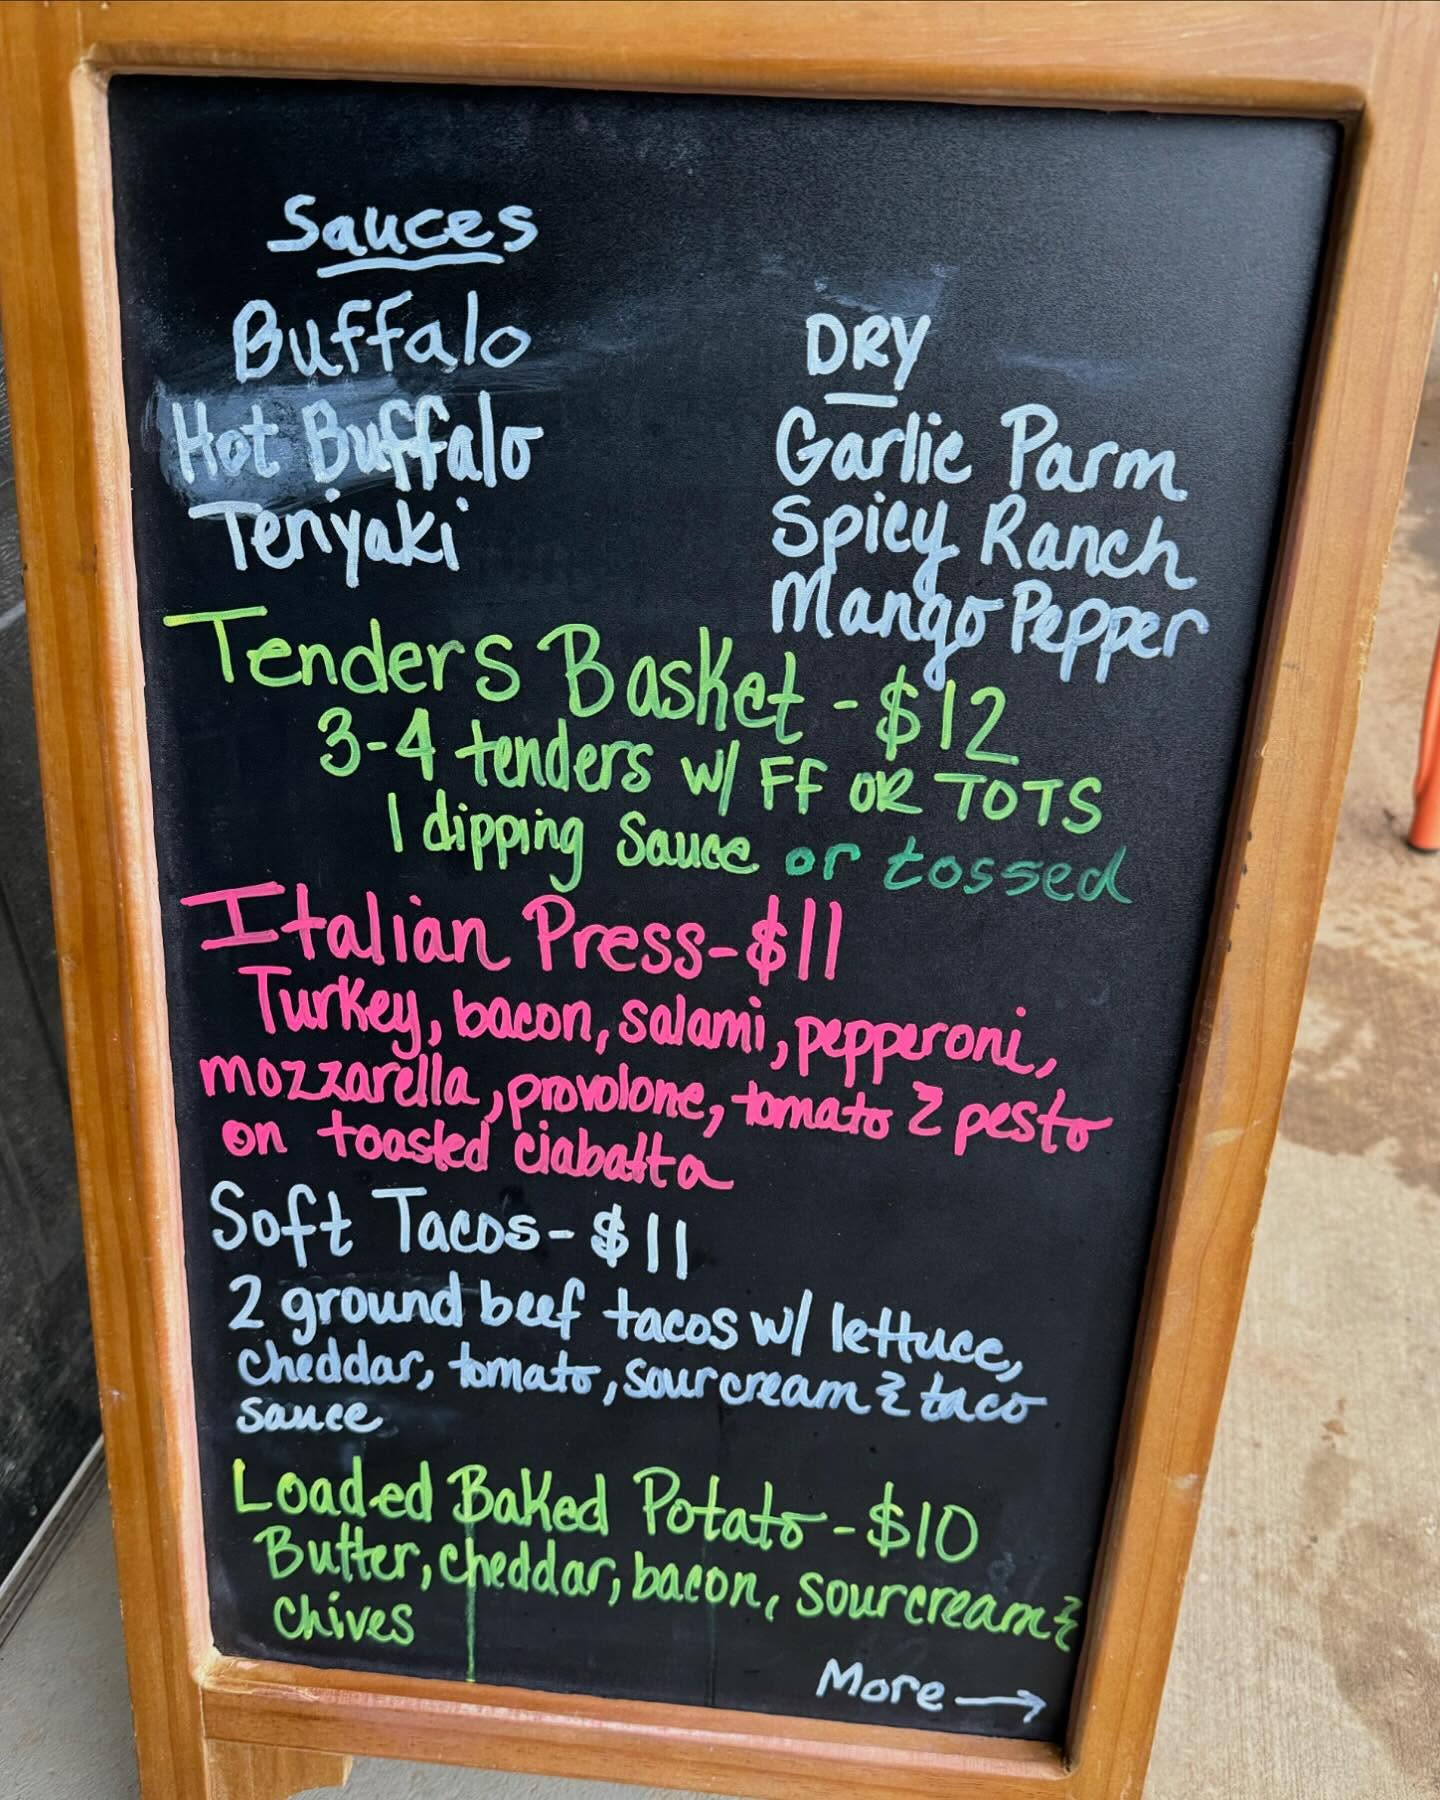 Sauces
Buffalo
Hot Buffalo
Teriyaki
DRY
Garlic Parm
Spicy Ranch
Mango Pepper
Tenders Basket - $12
3-4 tenders w/ FF OR TOTS
1 dipping Sauce or tossed
Italian Press - $11
Turkey, bacon, salami, pepperoni,
mozzarella, provolone, tomato & pesto
on toasted ciabatta
Soft Tacos - $11
2 ground beef tacos w/ lettuce,
cheddar, tomato, sour cream & taco
sauce
Loaded Baked Potato - $10
Butter, cheddar, bacon, sour cream &
chives
More →